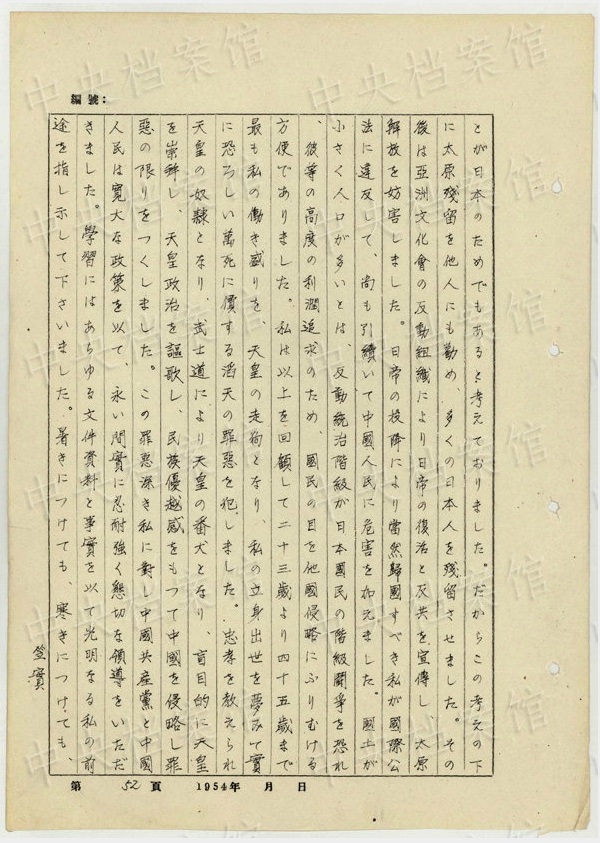 編號：
とが日本のためでもあると考えておりました。だからこの考えの下
に太原残留を他人にも勤め、多くの日本人を残留させました。その
後は亞洲文化會の反動組織により日帝の復活と反共を宣傳し太原
解放を妨害しました。日帝の投降により當然歸國すべき私が國際公
法に違反して、尚も引續いて中國人民に危害を加えました。國土が
小さく人口が多いとは、反動統治階級が日本國民の階級闘爭を恐れ
、彼等の高度の利潤追求のため、國民の目を他國侵略にふりむける
方便でありました。私は以上を回顧して二十三歳より四十五歳まで
最も私の働き盛りを、天皇の走狗となり、私の立身出世を夢みて實
に恐ろしい萬死に價する滔天の罪惡を犯しました。忠孝を教えられ
天皇の奴隷となり、武士道により天皇の番犬となり、盲目的に天皇
を崇拜し、天皇政治を謳歌し、民族優越感をもつて中國を侵略し罪
惡の限りをつくしました。この罪惡深き私に對し中國共産黨と中國
人民は寛大な政策を以て、永い間實に忍耐強く懇切な領導をいただ
きました。學習にはあらゆる文件資料と事實を以て光明なる私の前
途を指し示して下さいました。暑きにつけても、寒きにつけても、
笠實
第 52 頁 1954年 月 日
中央档案馆